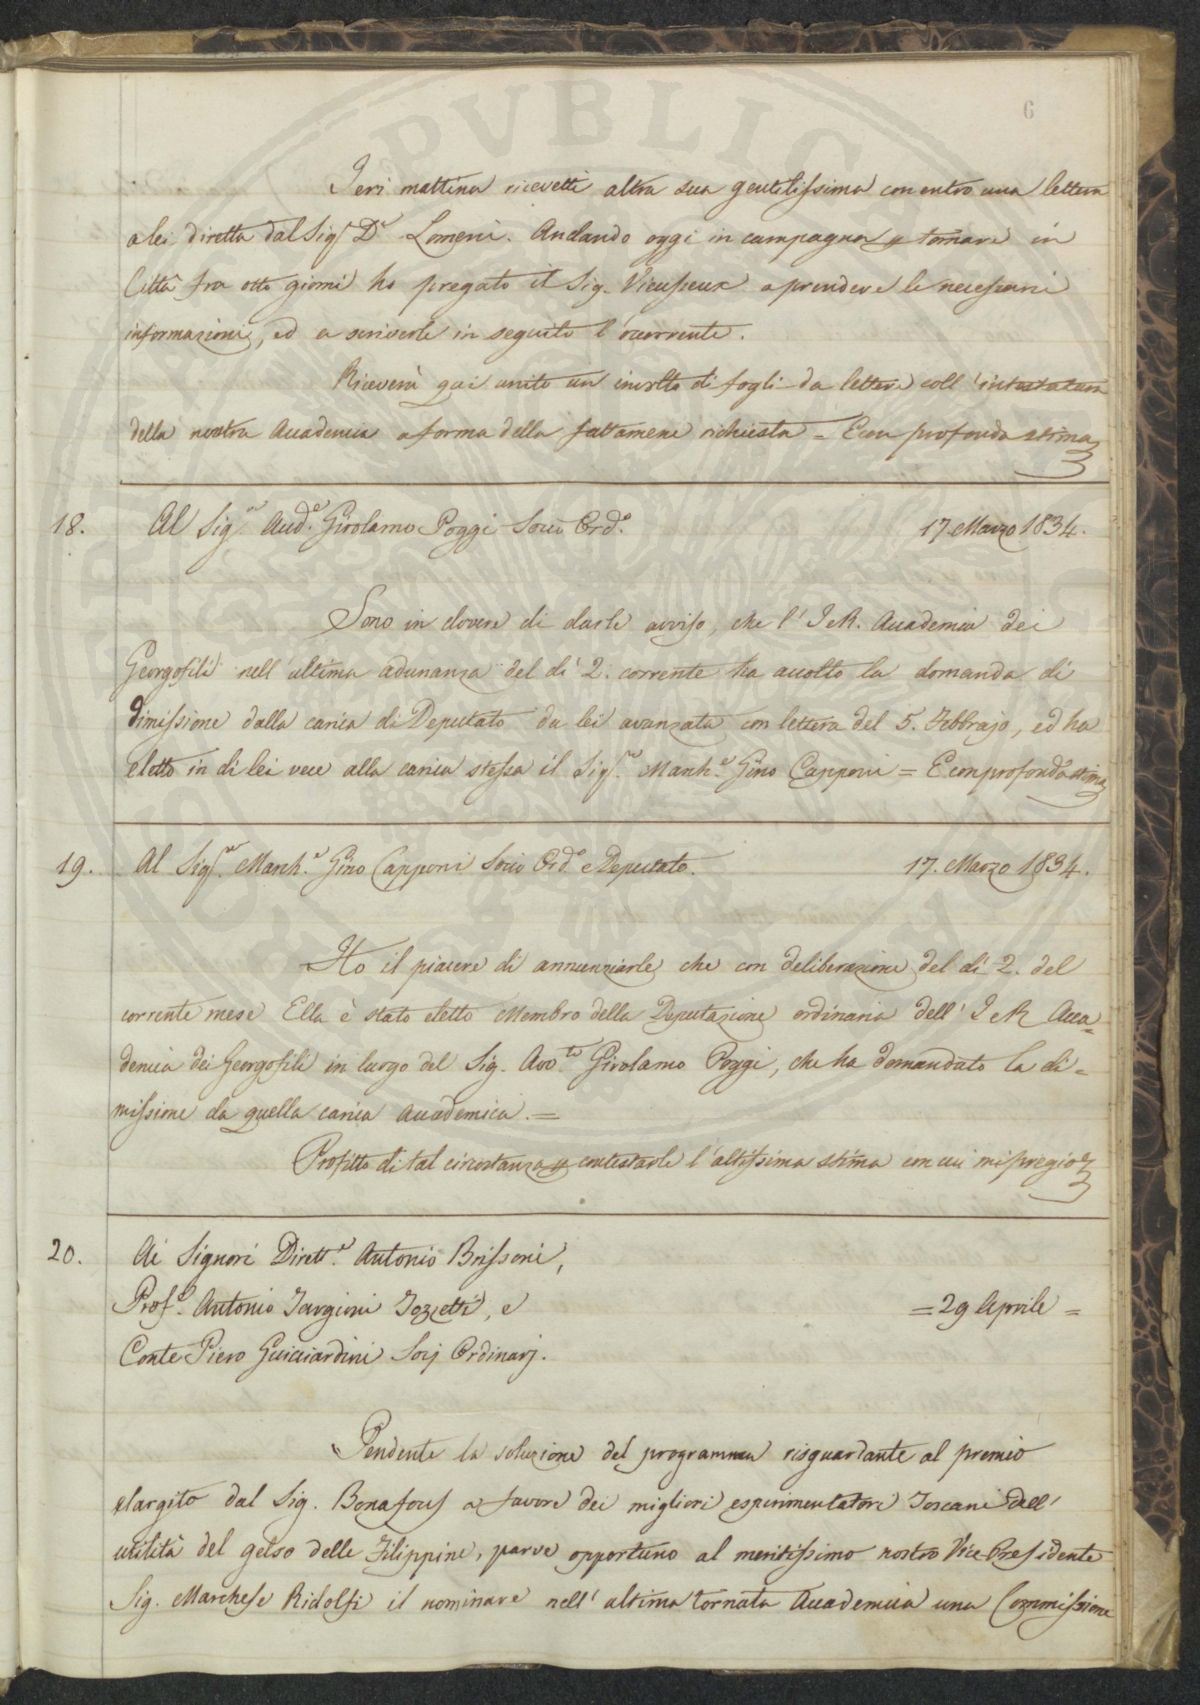 6
Jeri mattina ricevetti altra sua gentilissima con entro una lettera
a lei diretta dal Sig.r D.r Lomeni. Andando oggi in campagna p tornare in
Città fra otto giorni ho pregato il Sig. Vieusseux a prendere le necessarie
informazioni, ed a scriverle in seguito l'occorrente.
Riceverà qui unito un involto di fogli da lettere coll'intestatura
della nostra Accademia a forma della fattamene richiesta = E con profonda stima
18. Al Sig.re Aud.e Girolamo Poggi Socio Ord.o 17. Marzo 1834.
Sono in dovere di darle avviso, che l'I e R. Accademia dei
Georgofili nell'ultima adunanza del dì 2. corrente ha accolto la domanda di
dimissione dalla carica di Deputato da lei avanzata con lettera del 5. Febbrajo, ed ha
eletto in di lei vece alla carica stessa il Sig.re March.e Gino Capponi = E con profonda stima
19. Al Sig.re March.e Gino Capponi Socio Ord.o e Deputato. 17. Marzo 1834.
Ho il piacere di annunziarle che con deliberazione del dì 2. del
corrente mese Ella è stato eletto Membro della Deputazione ordinaria dell'I e R Acca=
demia dei Georgofili in luogo del Sig. Avv.to Girolamo Poggi, che ha domandato la di=
missione da quella carica Accademica. =
Profitto di tal circostanza p contestarle l'altissima stima con cui mi pregio
20. Ai Signori Dirett.e Antonio Brissoni,
Prof.e Antonio Targioni Tozzetti, e = 29 Aprile =
Conte Piero Guicciardini Socj Ordinarj.
Pendente la soluzione del programma risguardante al premio
elargito dal Sig. Bonafous a favore dei migliori esperimentatori Toscani dell'
utilità del gelso delle Filippine, parve opportuno al meritissimo nostro Vice-Presidente
Sig. Marchese Ridolfi il nominare nell'ultima tornata Accademica una Commissione